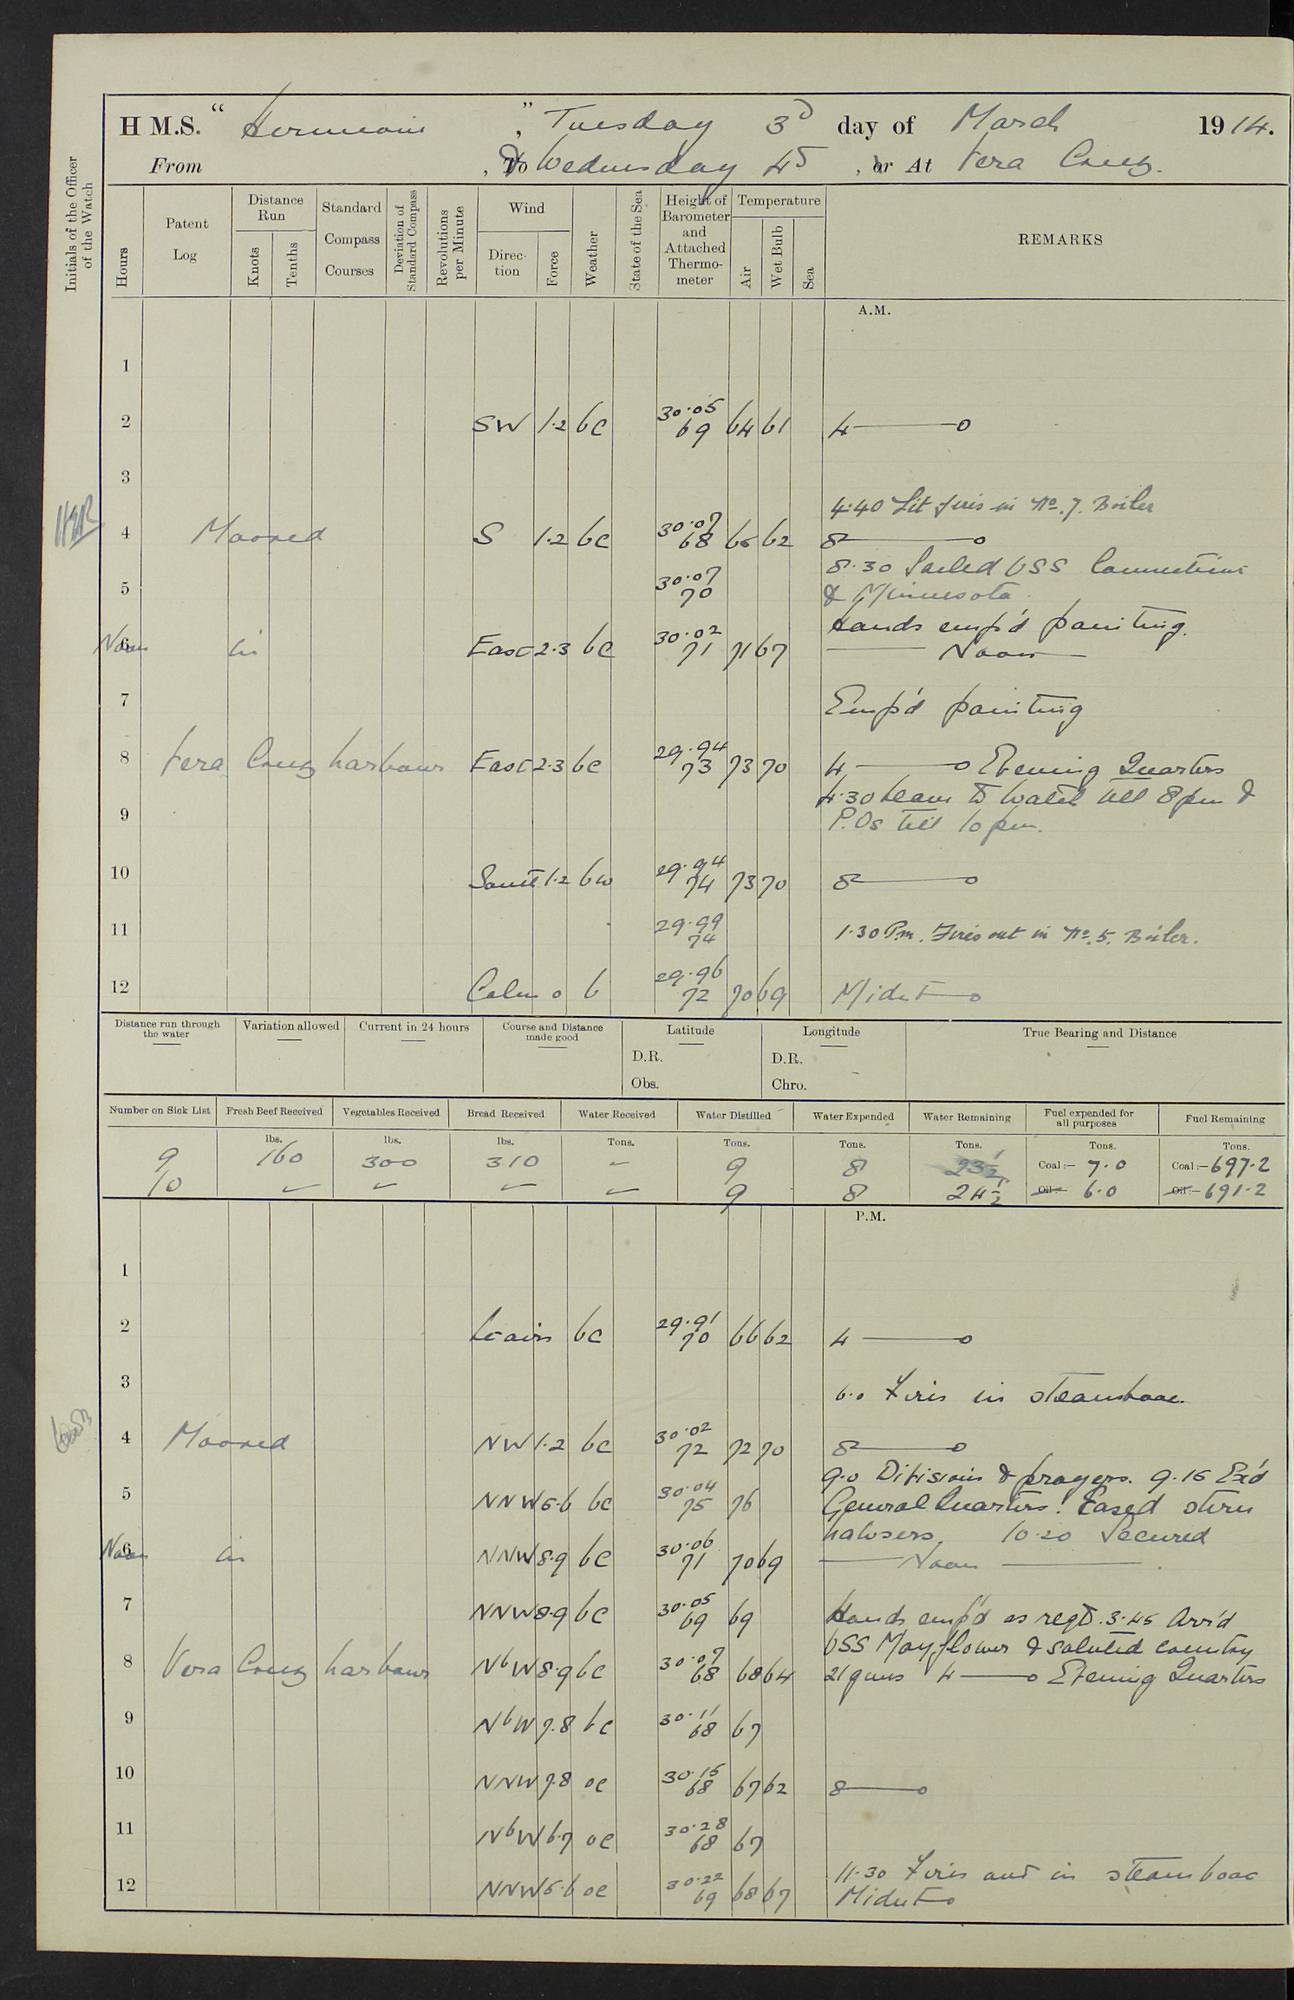 H M.S. " Hermione ", Tuesday 3d day of March 1914.
From , To & Wednesday 4th , or At Vera Cruz.
Initials of the Officer of the Watch
Hours
Patent Log
Distance Run
Knots
Tenths
Standard Compass Courses
Deviation of Standard Compass
Revolutions per Minute
Wind
Direction
Force
Weather
State of the Sea
Height of Barometer and Attached Thermometer
Temperature
Air
Wet Bulb
Sea
REMARKS
A.M.
1
2 SW 1.2 bc 30.05 69 64 61 4
3
4:40 Lit fires in No. 7. Boiler
4 Moored S 1.2 bc 30.07 68 65 62 8
8.30 Sailed USS Connecticut
5 30.07 70 & Minnesota.
Hands emp'd painting.
6 Noon in East 2.3 bc 30.02 71 71 67 Noon
7 Emp'd painting
8 Vera Cruz harbour East 2.3 bc 29.94 73 73 70 4 Evening Quarters
4.30 Leave to Watch till 8pm &
9 P.Os till 10 pm.
10 South 1.2 bw 29.94 74 73 70 8
11 29.99 74 1.30 P.m. Fires out in No. 5. Boiler.
12 Calm 0 b 29.96 72 70 69 Midnt
Distance run through the water
Variation allowed
Current in 24 hours
Course and Distance made good
Latitude
D.R.
Obs.
Longitude
D.R.
Chro.
True Bearing and Distance
Number on Sick List Fresh Beef Received Vegetables Received Bread Received Water Received Water Distilled Water Expended Water Remaining Fuel expended for all purposes Fuel Remaining
lbs. lbs. lbs. Tons. Tons. Tons. Tons. Tons. Tons.
9 160 300 310 - 9 8 23½ Coal:- 7.0 Coal:- 697.2
10 - - - - 9 8 24½ Oil:- 6.0 Oil:- 691.2
P.M.
1
2 Lt airs bc 29.91 70 66 62 4
3 6.0 Fires in steamboat.
4 Moored NW 1.2 bc 30.02 72 72 70 8
9.0 Divisions & prayers. 9.15 Ex'd
5 NNW 5.6 bc 30.04 75 76 General Quarters. Eased stern
hawsers. 10.20 Secured
6 Noon in NNW 8.9 bc 30.06 71 70 69 Noon
7 NNW 8.9 bc 30.05 69 69 Hands emp'd as reqd. 3.45 Arr'd
USS Mayflower & saluted country
8 Vera Cruz harbour NbW 8.9 bc 30.07 68 68 64 21 guns 4 Evening Quarters
9 NbW 7.8 bc 30.11 68 67
10 NNW 7.8 oc 30.15 68 67 62 8
11 NbW 6.7 oc 30.28 68 67
11.30 Fires out in steamboat
12 NNW 5.6 oc 30.22 69 68 67 Midnt